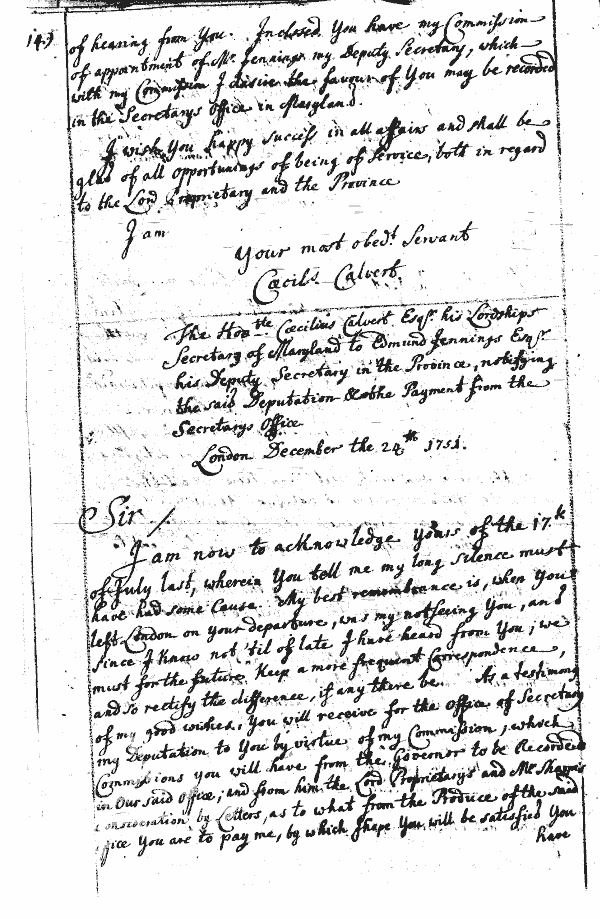 14.)
of hearing from You. Inclosed You have my Commission
of appointment of Mr. Jennings my Deputy Secretary, which
with my Commission I desire the favour of You may be recorded
in the Secretarys Office in Maryland.
I wish You happy Success in all affairs and shall be
glad of all opportunings of being of Service, both in regard
to the Lord Proprietary and the Province
I am
Your most obedt. Servant
Cœcils. Calvert.
The Honble Cœcilius Calvert Esqr. his Lordships
Secretary of Maryland to Edmund Jennings Esqr.
his Deputy Secretary in the Province, notifying
the said Deputation & the Payment from the
Secretarys Office
London December the 24th 1751.
Sir /
I am now to acknowledge yours of the 17.th
of July last, wherein You tell me my long silence must
have had some Cause. My best remembrance is, when You
left London on your departure, was my not seeing You, and
since I know not 'til of late I have heard from You; we
must for the future Keep a more frequent Correspondence,
and so rectify the difference, if any there be. As a testimony
of my good wishes, You will receive for the Office of Secretary
my Deputation to You by virtue of my Commission, which
Commissions you will have from the Governor to be Recorded
in Our said Office; and from him the Lord Proprietarys and Mr. Sharpes
consideration by Letters, as to what from the Produce of the said
ffice You are to pay me, by which I hope You will be satisfied You
have